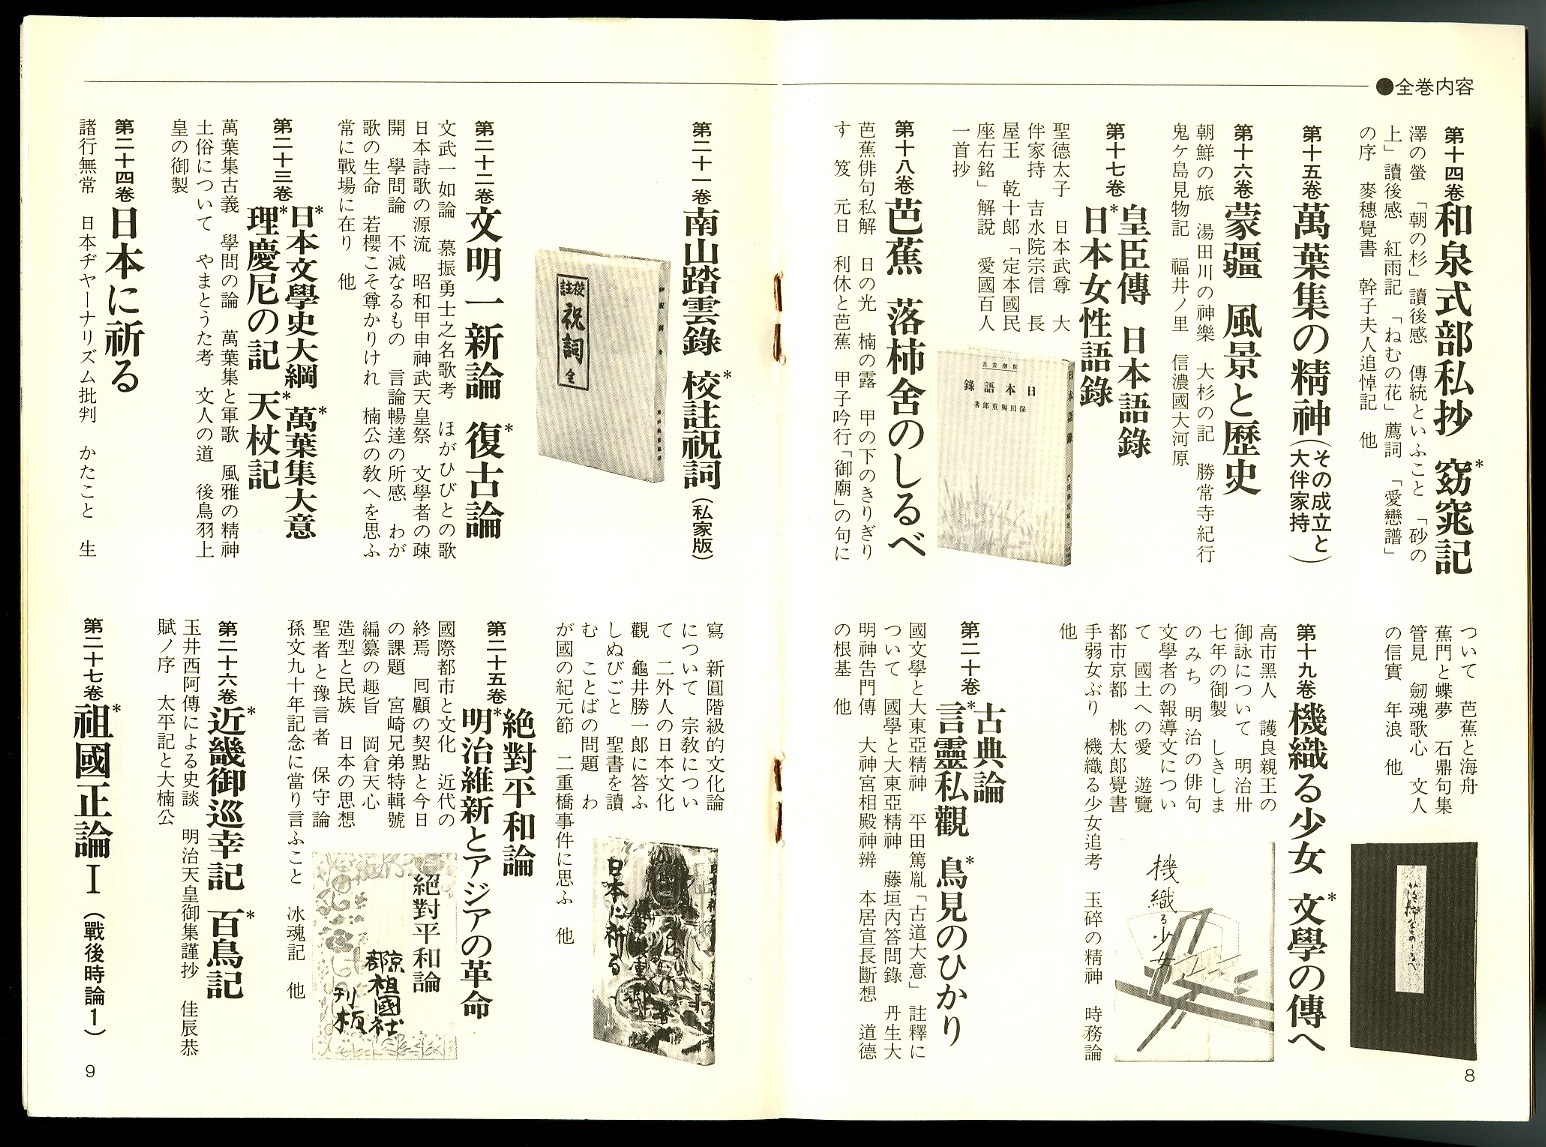 ●全巻内容
第十四巻 和泉式部私抄 窈窕記*
澤の螢 「朝の杉」讀後感 傳統といふこと 「砂の
上」讀後感 紅雨記 「ねむの花」薦詞 「愛戀譜」
の序 麥穗覺書 幹子夫人追悼記 他
第十五巻 萬葉集の精神(その成立と大伴家持)
第十六巻 蒙疆 風景と歷史
朝鮮の旅 湯田川の神樂 大杉の記 勝常寺紀行
鬼ケ島見物記 福井ノ里 信濃國大河原
第十七巻 皇臣傳 日本語錄
日本女性語錄*
聖德太子 日本武尊 大
伴家持 吉水院宗信 長
屋王 乾十郎「定本國民
座右銘」解說 愛國百人
一首抄
日本語錄
保田與重郎著
第十八巻 芭蕉 落柿舍のしるべ
芭蕉俳句私解 日の光 楠の露 甲の下のきりぎり
す 笈 元日 利休と芭蕉 甲子吟行「御廟」の句に
ついて 芭蕉と海舟
蕉門と蝶夢 石鼎句集
管見 劒魂歌心 文人
の信實 年浪 他
第十九巻 機織る少女 文學の傳へ*
高市黑人 護良親王の
御詠について 明治卅
七年の御製 しきしま
のみち 明治の俳句
文學者の報導文につい
て 國土への愛 遊覽
都市京都 桃太郎覺書
手弱女ぶり 機織る少女追考 玉碎の精神 時務論
他
機織る少女
第二十巻 古典論
言靈私觀* 鳥見のひかり*
國文學と大東亞精神 平田篤胤「古道大意」註釋に
ついて 國學と大東亞精神 藤垣內答問錄 丹生大
明神告門傳 大神宮相殿神辨 本居宣長斷想 道德
の根基 他
8
第二十一巻 南山踏雲錄 校註祝詞*(私家版)
校註 祝詞 全
第二十二巻 文明一新論 復古論*
文武一如論 慕振勇士之名歌考 ほがひびとの歌
日本詩歌の源流 昭和甲申神武天皇祭 文學者の疎
開 學問論 不滅なるもの 言論暢達の所感 わが
歌の生命 若櫻こそ尊かりけれ 楠公の教へを思ふ
常に戰場に在り 他
第二十三巻 日本文學史大綱* 萬葉集大意*
理慶尼の記* 天杖記*
萬葉集古義 學問の論 萬葉集と軍歌 風雅の精神
土俗について やまとうた考 文人の道 後鳥羽上
皇の御製
第二十四巻 日本に祈る
諸行無常 日本ヂャーナリズム批判 かたこと 生
寫 新圓階級的文化論
について 宗教につい
て 二外人の日本文化
觀 龜井勝一郎に答ふ
しぬびごと 聖書を讀
む ことばの問題 わ
が國の紀元節 二重橋事件に思ふ 他
日本に祈る
第二十五巻 絶對平和論
明治維新とアジアの革命*
國際都市と文化 近代の
終焉 囘顧の契點と今日
の課題 宮崎兄弟特輯號
編纂の趣旨 岡倉天心
造型と民族 日本の思想
聖者と豫言者 保守論
孫文九十年記念に當り言ふこと 冰魂記 他
絶對平和論
京都 祖國社 刊板
第二十六巻 近畿御巡幸記* 百鳥記*
玉井西阿傳による史談 明治天皇御集謹抄 佳辰恭
賦ノ序 太平記と大楠公
第二十七巻 祖國正論Ⅰ*(戰後時論1)
9